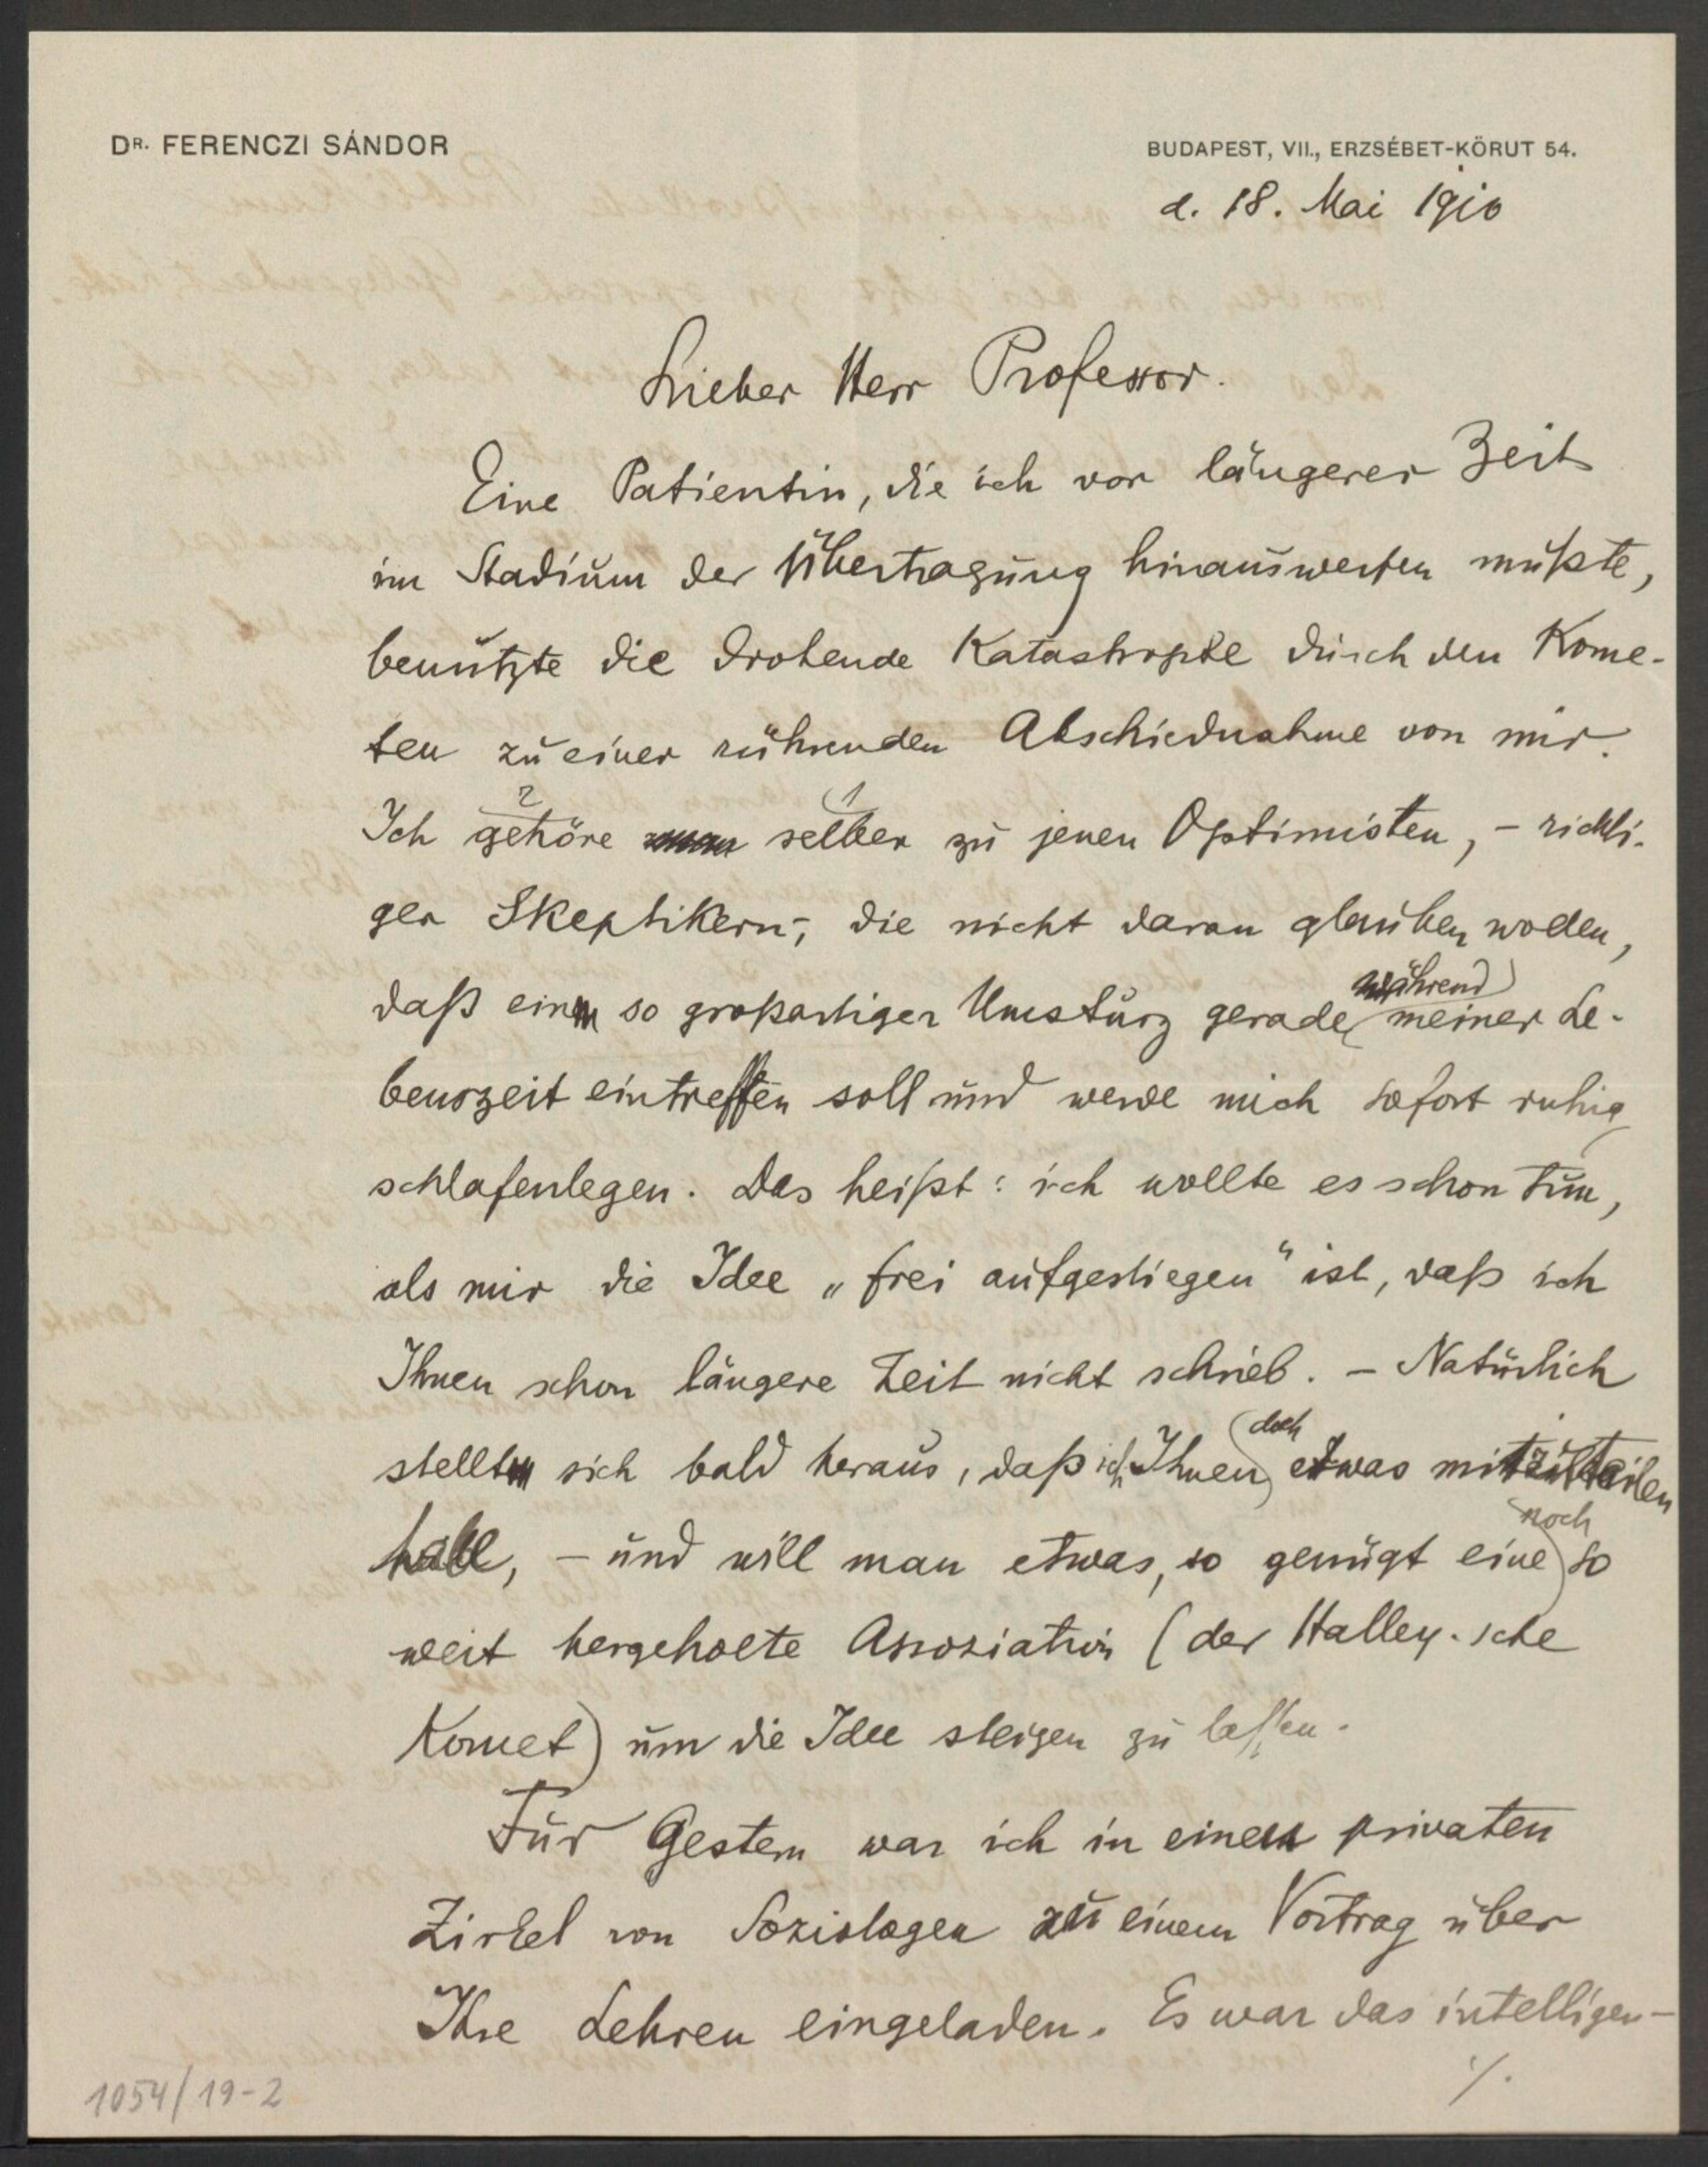 DR. FERENCZI SÁNDOR
BUDAPEST, VII., ERZSÉBET-KÖRUT 54.
d. 18. Mai 1910
Lieber Herr Professor.
Eine Patientin, die ich vor längerer Zeit
im Stadium der Übertragung hinauswerfen mußte,
benützte die drohende Katastrophe durch den Kome-
ten zu einer rührenden Abschiednahme von mir.
2 1
Ich gehöre selber zu jenen Optimisten, – richti-
ger Skeptikern, die nicht daran glauben wollen,
während
daß ein so großartiger Umsturz gerade meiner Le-
benszeit eintreffen soll und werde mich sofort ruhig
schlafenlegen. Das heißt: ich wollte es schon tun,
als mir die Idee „frei aufgestiegen“ ist, daß ich
Ihnen schon längere Zeit nicht schrieb. – Natürlich
doch
stellt sich bald heraus, daß ich Ihnen etwas mitzuteilen
noch
habe, – und will man etwas, so genügt eine so
weit hergeholte Assoziation (der Halley-sche
Komet) um die Idee steigen zu lassen.
Für Gestern war ich in einem privaten
Zirkel von Soziologen zu einem Vortrag über
Ihre Lehren eingeladen. Es war das intelligen-
./.
1054/19-2